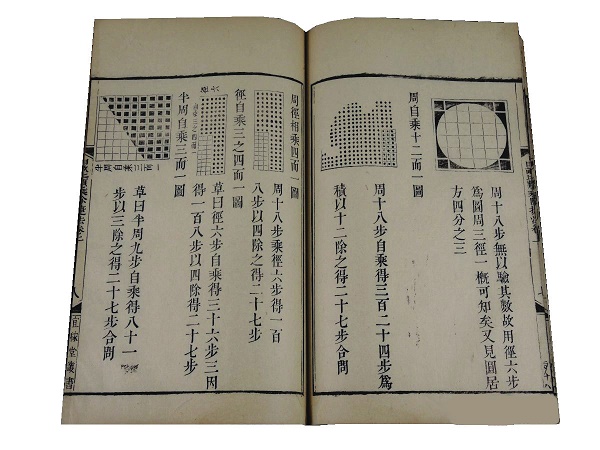 周十八步無以驗其數故用徑六步
為圓周三徑一槪可知矣又見圓居
方四分之三
周自乘十二而一圖
周十八步自乘得三百二十四步為
積以十二除之得二十七步合問
周徑相乘四而一圖
周十八步乘徑六步得一百
八步以四除之得二十七步
徑自乘三之四而一圖
草曰徑六步自乘得三十六步三因
得一百八步以四除得二十七步
半周自乘三而一圖
半周自乘三而一
草曰半周九步自乘得八十一
步以三除之得二十七步合問
宜稼堂叢書